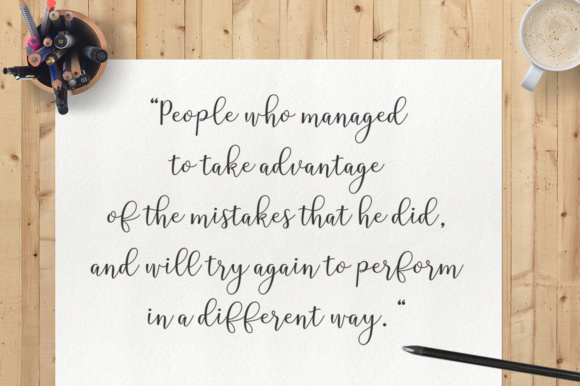 “People who managed
to take advantage
of the mistakes that he did,
and will try again to perform
in a different way. “